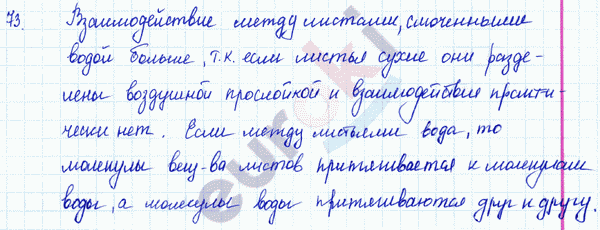 73. Взаимодействие между листами, смоченными
водой больше, т.к. если листья сухие они разде-
лены воздушной прослойкой и взаимодействие практи-
чески нет. Если между листьями вода, то
молекулы вещ-ва листов притягивается к молекулам
воды, а молекулы воды притягиваются друг к другу.
euroki